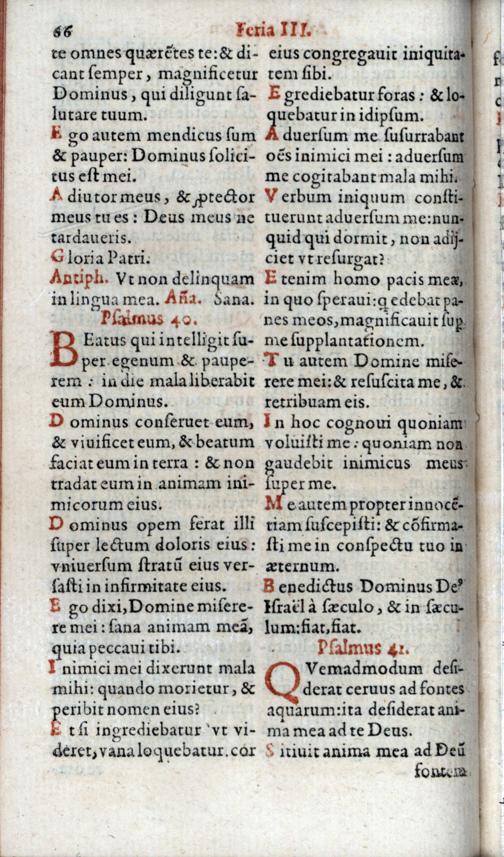 66
Feria III.
te omnes quærẽtes te: & di-
cant semper, magnificetur
Dominus, qui diligunt sa-
lutare tuum.
Ego autem mendicus sum
& pauper: Dominus solici-
tus est mei.
Adiutor meus, & ꝓtector
meus tu es: Deus meus ne
tardaueris.
Gloria Patri.
Antiph. Vt non delinquam
in lingua mea. Aña. Sana.
Psalmus 40.
BEatus qui intelligit su-
per egenum & paupe-
rem: in die mala liberabit
eum Dominus.
Dominus conseruet eum,
& viuificet eum, & beatum
faciat eum in terra: & non
tradat eum in animam ini-
micorum eius.
Dominus opem ferat illi
super lectum doloris eius:
vniuersum stratũ eius ver-
sasti in infirmitate eius.
Ego dixi, Domine misere-
re mei: sana animam meã,
quia peccaui tibi.
Inimici mei dixerunt mala
mihi: quando morietur, &
peribit nomen eius?
Et si ingrediebatur vt vi-
deret, vana loquebatur. cor
eius congregauit iniquita-
tem sibi.
Egrediebatur foras: & lo-
quebatur in idipsum.
Aduersum me susurrabant
oẽs inimici mei: aduersum
me cogitabant mala mihi.
Verbum iniquum consti-
tuerunt aduersum me: nun-
quid qui dormit, non adij-
ciet vt resurgat?
Etenim homo pacis meæ,
in quo speraui: q̃ edebat pa-
nes meos, magnificauit sup
me supplantationem.
Tu autem Domine mise-
rere mei: & resuscita me, &
retribuam eis.
In hoc cognoui quoniam
voluisti me: quoniam non
gaudebit inimicus meus
super me.
Me autem propter innocẽ-
tiam suscepisti: & cõfirma-
sti me in conspectu tuo in
æternum.
Benedictus Dominus Deꝰ
Israël à sæculo, & in sæcu-
lum: fiat, fiat.
Psalmus 41.
QVemadmodum desi-
derat ceruus ad fontes
aquarum: ita desiderat ani-
ma mea ad te Deus.
Sitiuit anima mea ad Deũ
fontem